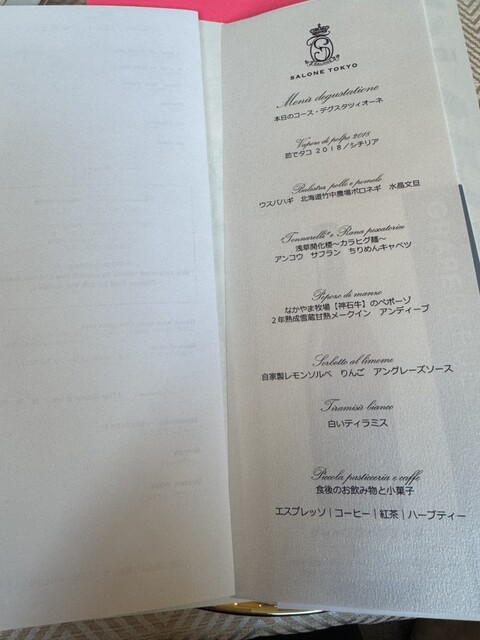 SALONE TOKYO
Menù degustazione
本日のコース・デグスタツィオーネ
Vapore di polpo 2018
茹でタコ 2018/シチリア
Balestra pollo e pomelo
ウスバハギ 北海道竹中農場ポロネギ 水晶文旦
"Tonnarelli" e Rana pescatrice
浅草開化楼〜カラヒグ麺〜
アンコウ サフラン ちりめんキャベツ
Peposo di manzo
なかやま牧場【神石牛】のペポーソ
2年熟成雪蔵甘熟メークイン アンディーブ
Sorbetto al limone
自家製レモンソルベ りんご アングレーズソース
Tiramisù bianco
白いティラミス
Piccola pasticceria e caffe
食後のお飲み物と小菓子
エスプレッソ|コーヒー|紅茶|ハーブティー